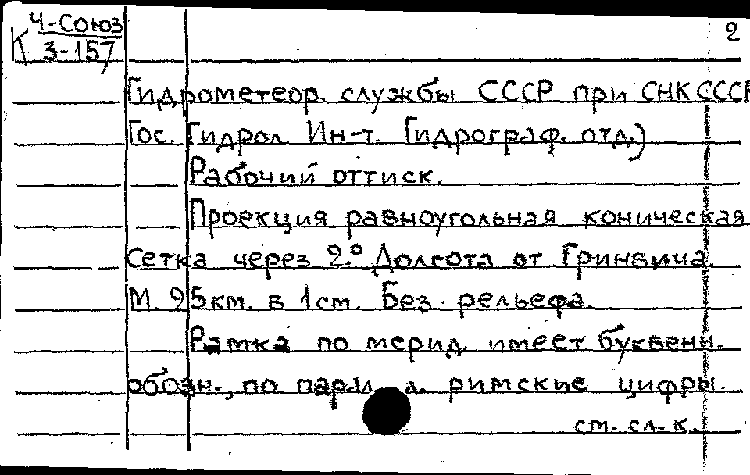 Ч-Союз 2
К 3-157
Гидрометеор. службы СССР при СНК СССР
Гос. Гидрол Ин-т. Гидрограф. отд.)
Рабочий оттиск.
Проекция равноугольная коническая
Сетка через 2.° Долгота от Гринвича.
М. 25км. в 1см. Без рельефа.
Рамка по мерид. имеет буквенн.
обозн., по парал. римские цифры.
см. сл. к.